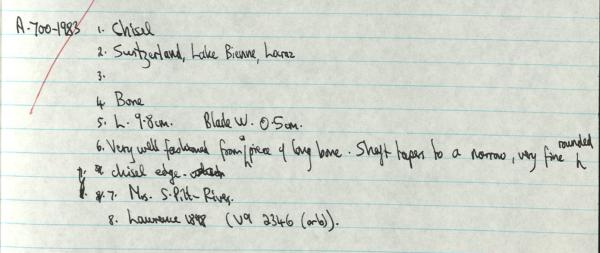 A.700-1983 1. Chisel
2. Switzerland, Lake Bienne, Laraz
3.
4. Bone
5. L. 9.8cm. Blade W. 0.5cm.
6. Very well fashioned from a piece of long bone. Shaft tapers to a narrow, very fine rounded
chisel edge.
7. Mrs. S. Pitt-Rivers.
8. Lawrence 1898 (V9 2346 (orb)).